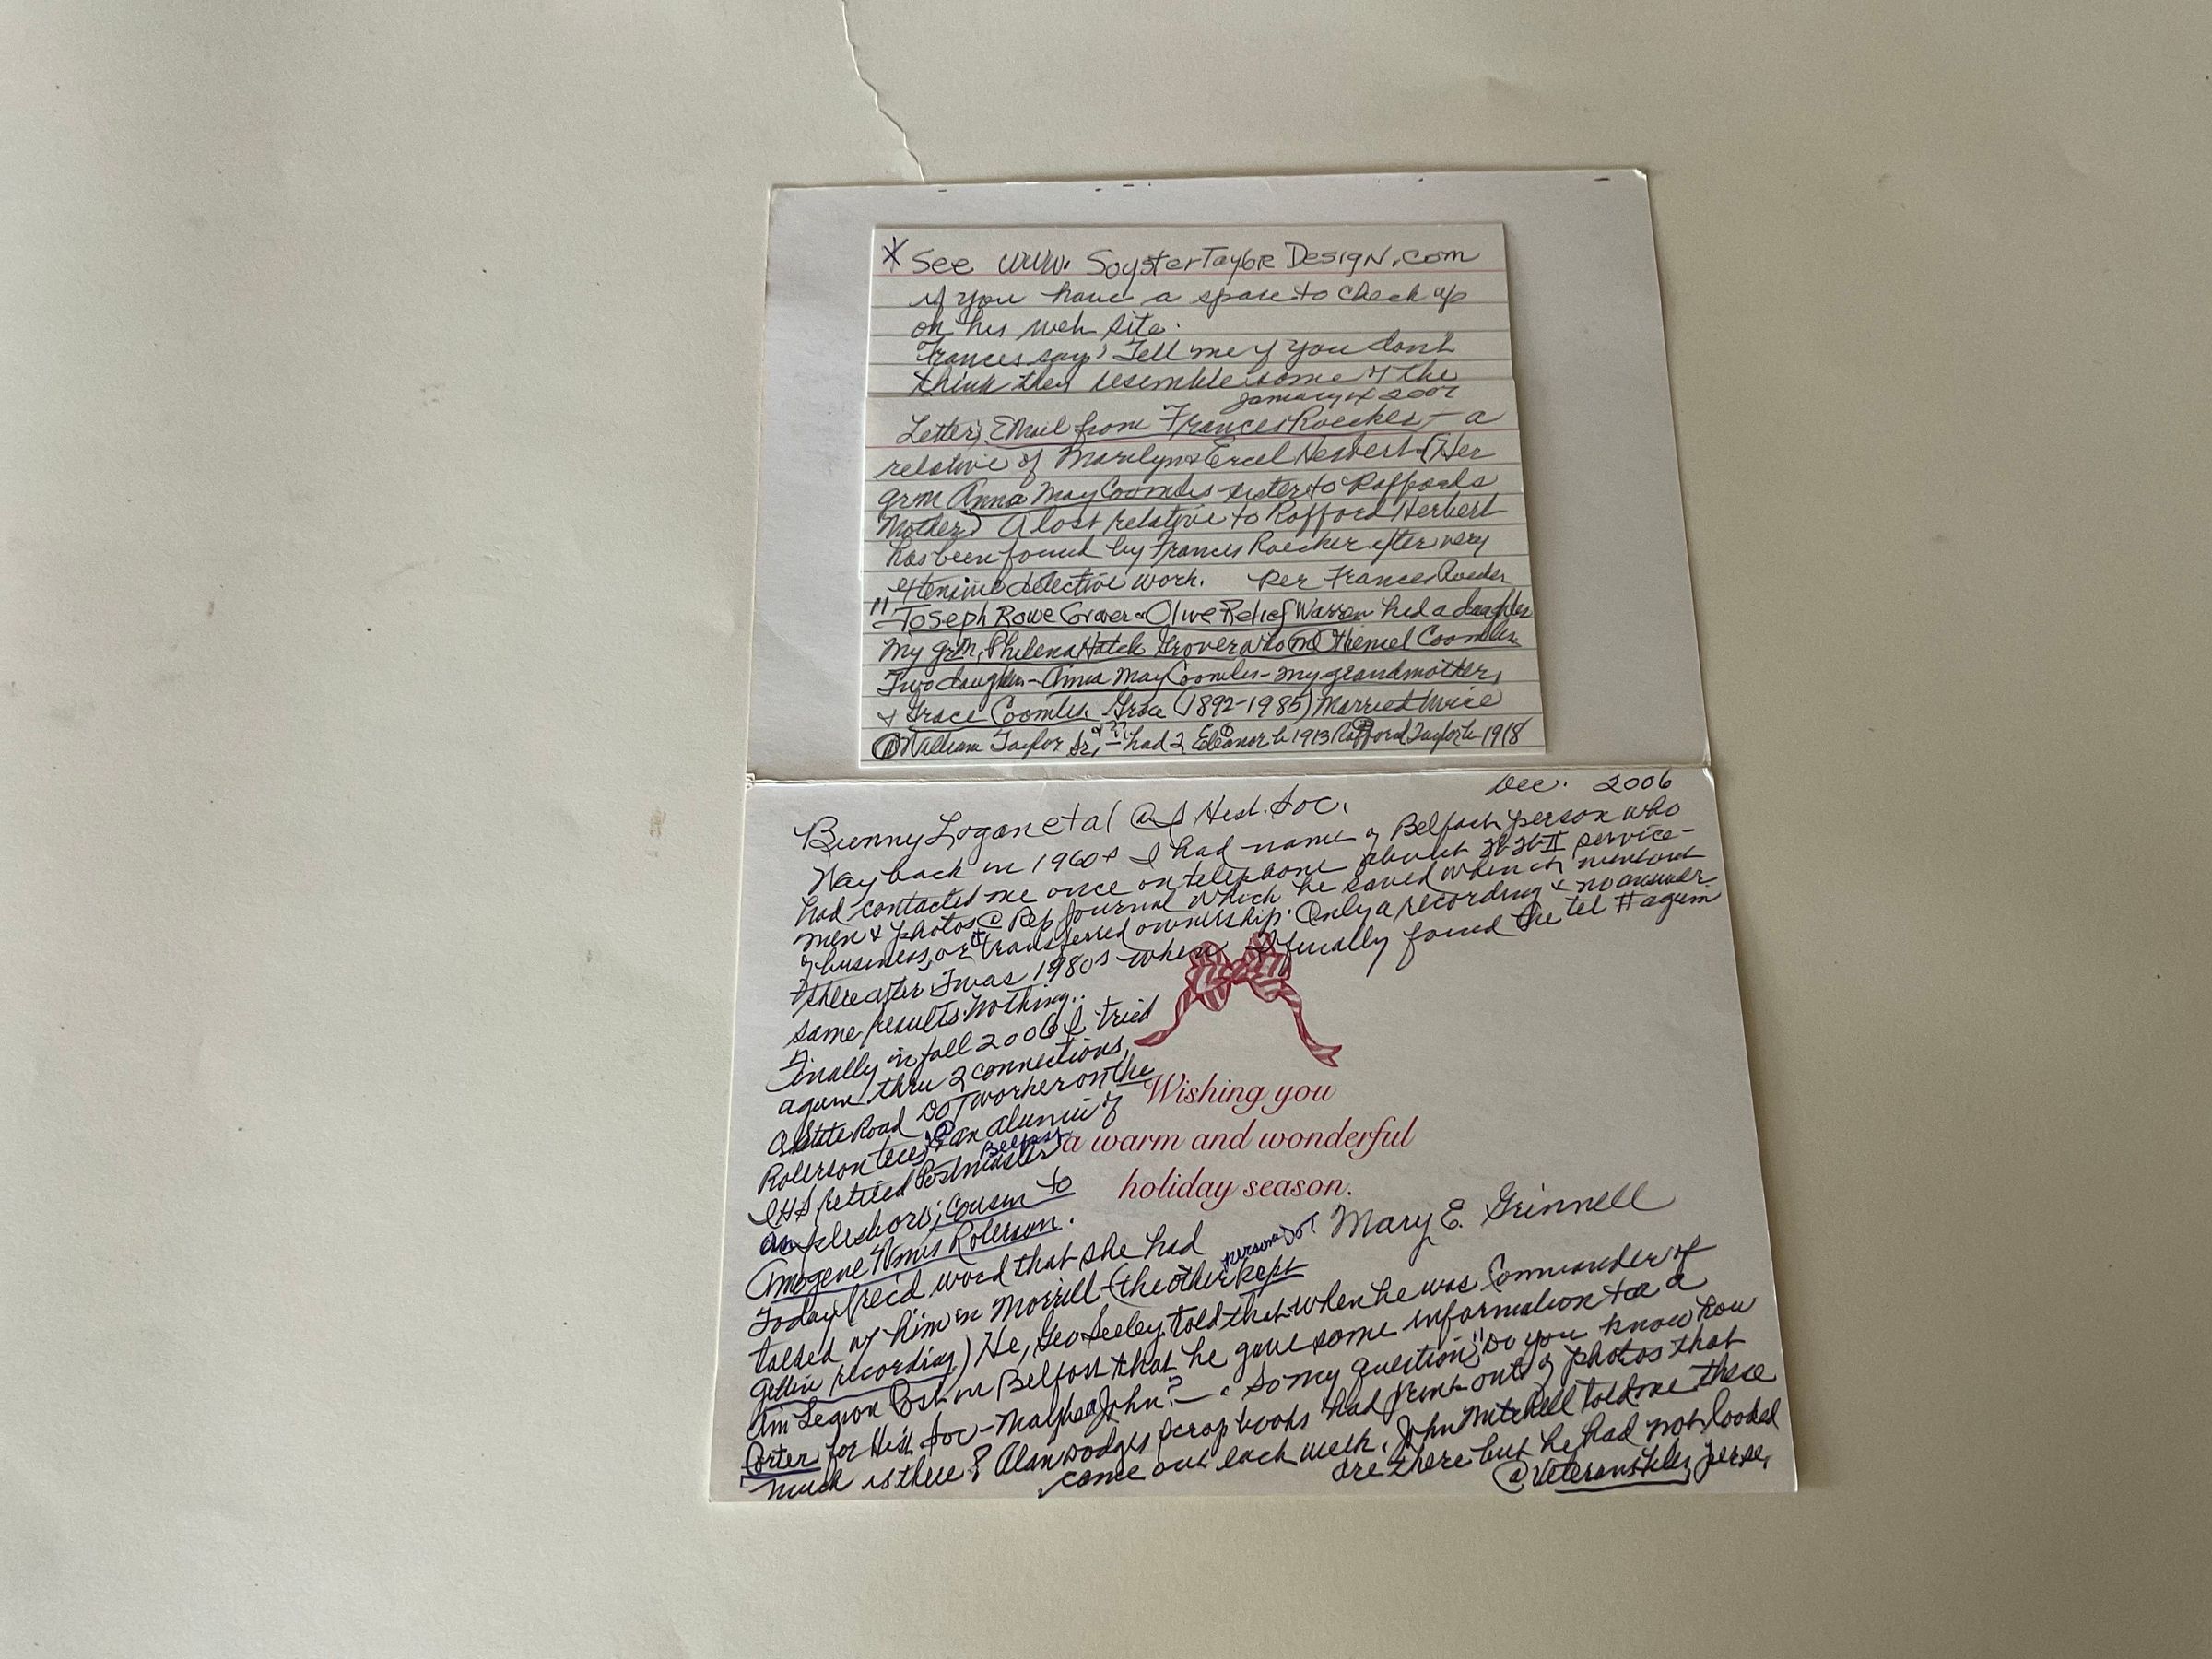 * See www. SoysterTaylor Design.com
if you have a space to check up
on his web site.
Frances says Tell me if you dont
think they resemble some of the
January 2007
Letter, EMail from Frances Roecker, - a
relative of Marilyn & Ercel Herbert (Her
grm Anna May Coombs sister to Raffords
Mother) A lost relative to Rafford Herbert
has been found by Frances Roecker after very
extensive detective work. Per Frances
"Joseph Rowe Grover - Olive Relief Warren had a daughter
my grM, Philena Hatch Grover who m Coombs
Two daughters - Anna May Coombs - my grandmother,
& Grace Coombs Grace (1892-1985) Married twice
① William Taylor Sr, - had 2 Eleanor b 1913 Rafford Taylor b 1918
Dec. 2006
Bunny Logan et al @ Hist. Soc.
Way back in 1960s I had name of Belfast person who
had contacted me once on telephone about W W II service-
men & photos @ Rep Journal which he saved when it went out
of business, or transferred ownership. Only a recording & no answer
thereafter. It was 1980s when I finally found the tel # again
same results. Nothing..
Finally in fall 2006 I tried
again thru 2 connections,
a State Road DOT worker on the
Rolerson & @ an alumni of
retired Belfast Postmaster
cousin to
Imogene Rolerson.
Wishing you
a warm and wonderful
holiday season.
Mary E. Grinnell
Today rec'd word that she had
talked w/ him in Morrill - (the other person DOT kept
gettin recording.) He, Geo Seeley, told that when he was Commander of
Am Legion Post in Belfast that he gave some information to a
Porter for Hist Soc - Maybe John? - So my question, "Do you know how
much is there? Alan Dodges scrap books had print-outs of photos that
come out each week. John Mitchell told me these
are there but he had not looked
@